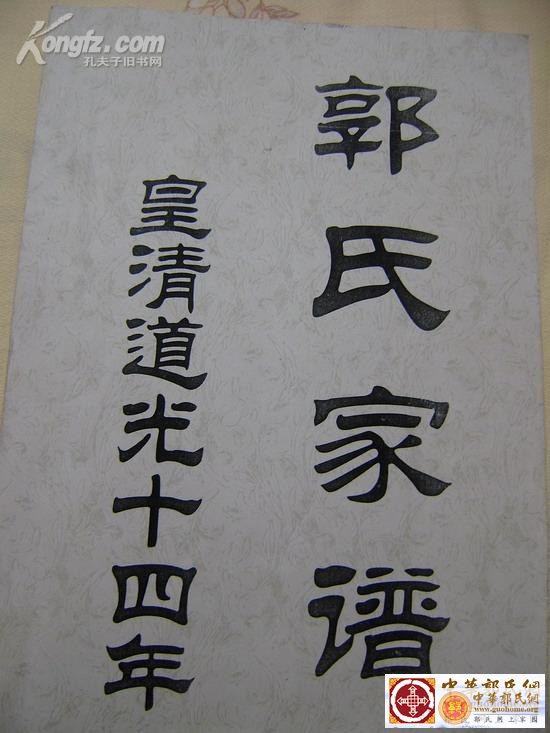 Kongfz.com
孔夫子旧书网
郭氏家谱
皇清道光十四年
中華郭氏網
中華郭氏網
www.guohome.org
郭氏网上家园